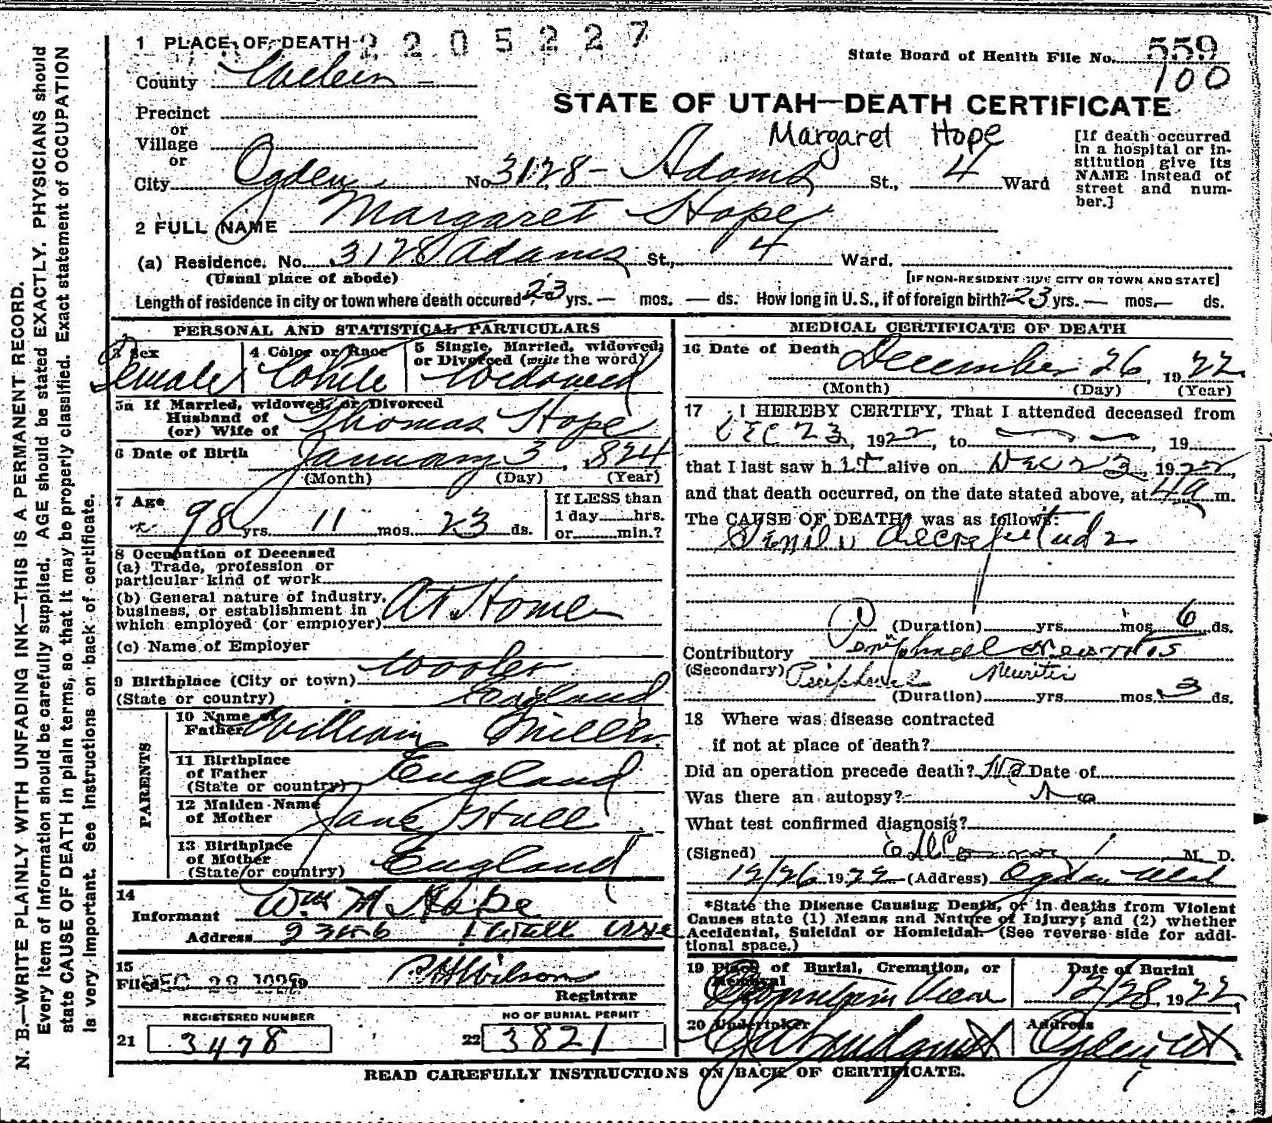 N. B.—WRITE PLAINLY WITH UNFADING INK—THIS IS A PERMANENT RECORD.
Every item of information should be carefully supplied. AGE should be stated EXACTLY. PHYSICIANS should
state CAUSE OF DEATH in plain terms, so that it may be properly classified. Exact statement of OCCUPATION
is very important. See instructions on back of certificate.
1 PLACE OF DEATH 2205227
State Board of Health File No. 559
100
County Weber
STATE OF UTAH—DEATH CERTIFICATE
Precinct
or
Village
or
Margaret Hope
[If death occurred
in a hospital or in-
stitution give its
NAME instead of
street and num-
ber.]
City Ogden No 3128- Adams St., 4 Ward
2 FULL NAME Margaret Hope
(a) Residence. No. 3128 Adams St., 4 Ward.
(Usual place of abode) [IF NON-RESIDENT GIVE CITY OR TOWN AND STATE]
Length of residence in city or town where death occured 23 yrs. — mos. — ds. How long in U.S., if of foreign birth? 23 yrs. — mos.— ds.
PERSONAL AND STATISTICAL PARTICULARS
3 Sex
Female
4 Color or Race
White
5 Single, Married, widowed,
or Divorced (write the word)
Widowed
5a If Married, widowed, or Divorced
Husband of
(or) Wife of Thomas Hope
6 Date of Birth January 3, 824
(Month) (Day) (Year)
7 Age
98 yrs 11 mos. 23 ds.
If LESS than
1 day......hrs.
or......min.?
8 Occupation of Deceased
(a) Trade, profession or
particular kind of work
(b) General nature of industry,
business, or establishment in
which employed (or employer) At Home
(c) Name of Employer
9 Birthplace (City or town) Wooler
(State or country) England
PARENTS
10 Name of
Father William Miller
11 Birthplace
of Father
(State or country) England
12 Maiden Name
of Mother Jane Hall
13 Birthplace
of Mother
(State or country) England
14
Informant Wm M Hope
Address
15
Filed DEC 28 192
Wilson
Registrar
REGISTERED NUMBER
21 3478
NO OF BURIAL PERMIT
22 3821
MEDICAL CERTIFICATE OF DEATH
16 Date of Death December 26, 1922
(Month) (Day) (Year)
17 I HEREBY CERTIFY, That I attended deceased from
DEC 23, 1922, to , 19
that I last saw h alive on Dec 23, 1922,
and that death occurred, on the date stated above, at 4 a m.
The CAUSE OF DEATH was as follows:
Senile decrepitude
(Duration) yrs mos 6 ds.
Contributory Peripheral Neuritis
(Secondary) Peripheral Neuritis
(Duration) yrs mos. 3 ds.
18 Where was disease contracted
if not at place of death?
Did an operation precede death? No Date of
Was there an autopsy? No
What test confirmed diagnosis?
(Signed) M. D.
12/26 1922 (Address) Ogden Utah
*State the Disease Causing Death, or in deaths from Violent
Causes state (1) Means and Nature of Injury; and (2) whether
Accidental, Suicidal or Homicidal. (See reverse side for addi-
tional space.)
19 Place of Burial, Cremation, or
Removal
Mountain View
Date of Burial
12/28, 1922
20 Undertaker
Address
Ogden Ut
READ CAREFULLY INSTRUCTIONS ON BACK OF CERTIFICATE.